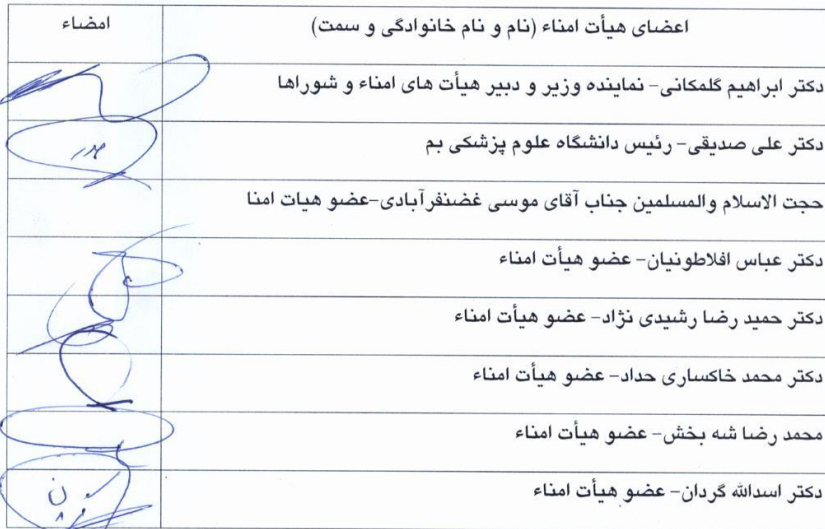 اعضای هیأت امناء (نام و نام خانوادگی و سمت) امضاء
دکتر ابراهیم گلمکانی- نماینده وزیر و دبیر هیأت های امناء و شوراها
دکتر علی صدیقی- رئیس دانشگاه علوم پزشکی بم
حجت الاسلام والمسلمین جناب آقای موسی غضنفرآبادی-عضو هیات امنا
دکتر عباس افلاطونیان- عضو هیأت امناء
دکتر حمید رضا رشیدی نژاد- عضو هیأت امناء
دکتر محمد خاکساری حداد- عضو هیأت امناء
محمد رضا شه بخش- عضو هیأت امناء
دکتر اسدالله گردان- عضو هیأت امناء